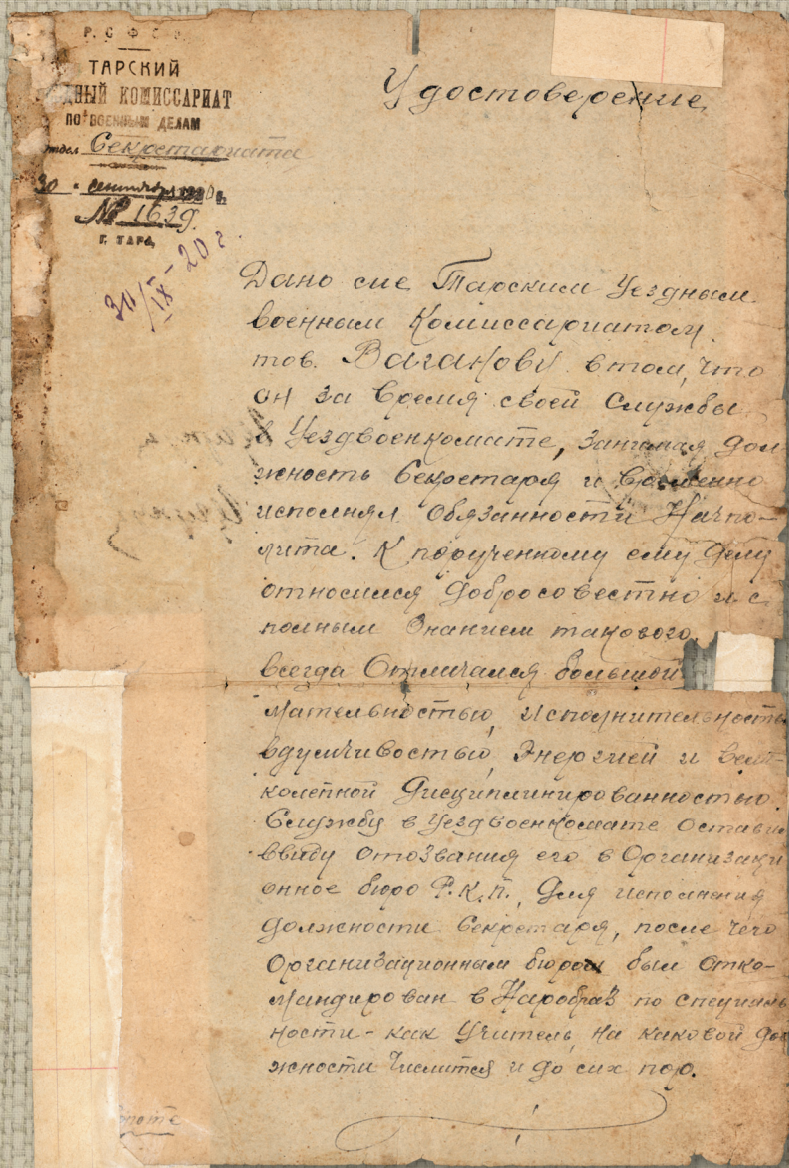 Р. С. Ф. С. Р.
ТАРСКИЙ
ДНЫЙ КОМИССАРИАТ
ПО ВОЕННЫМ ДЕЛАМ
тдел Секретариата
30 " сентября 1920 г.
№ 1639.
Г. ТАРА,
30/IX - 20 г.
Удостоверение
Дано сие Тарским Уездным
военным Комиссариатом
тов. Ваганову в том, что
он за время своей Службы
в Уездвоенкомате, занимая дол
жность Секретаря и временно
исполнял обязанности Начпо-
лита. К порученному ему делу
относился добросовестно и с
полным Знанием такового,
всегда Отличался большой
мательностью, исполнительность
вдумчивостью, Энергией и вели-
колепной Дисциплинированностью.
Службу в Уездвоенкомате остави
ввиду отозвания его в Организаци
онное бюро Р.К.П., для исполнения
должности Секретаря, после чего
Организационным бюром был отко-
мандирован в Наробраз по специаль
ности - как Учитель, на каковой до
жности Числится и до сих пор.